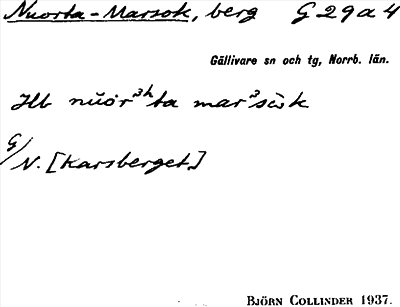 Nuorta-Marsok, berg G29a4
Gällivare sn och tg, Norrb. län.
Ht nŭòr³ʰta mar³sòk
G/N. [Karsberget.]
BJÖRN COLLINDER 1937.